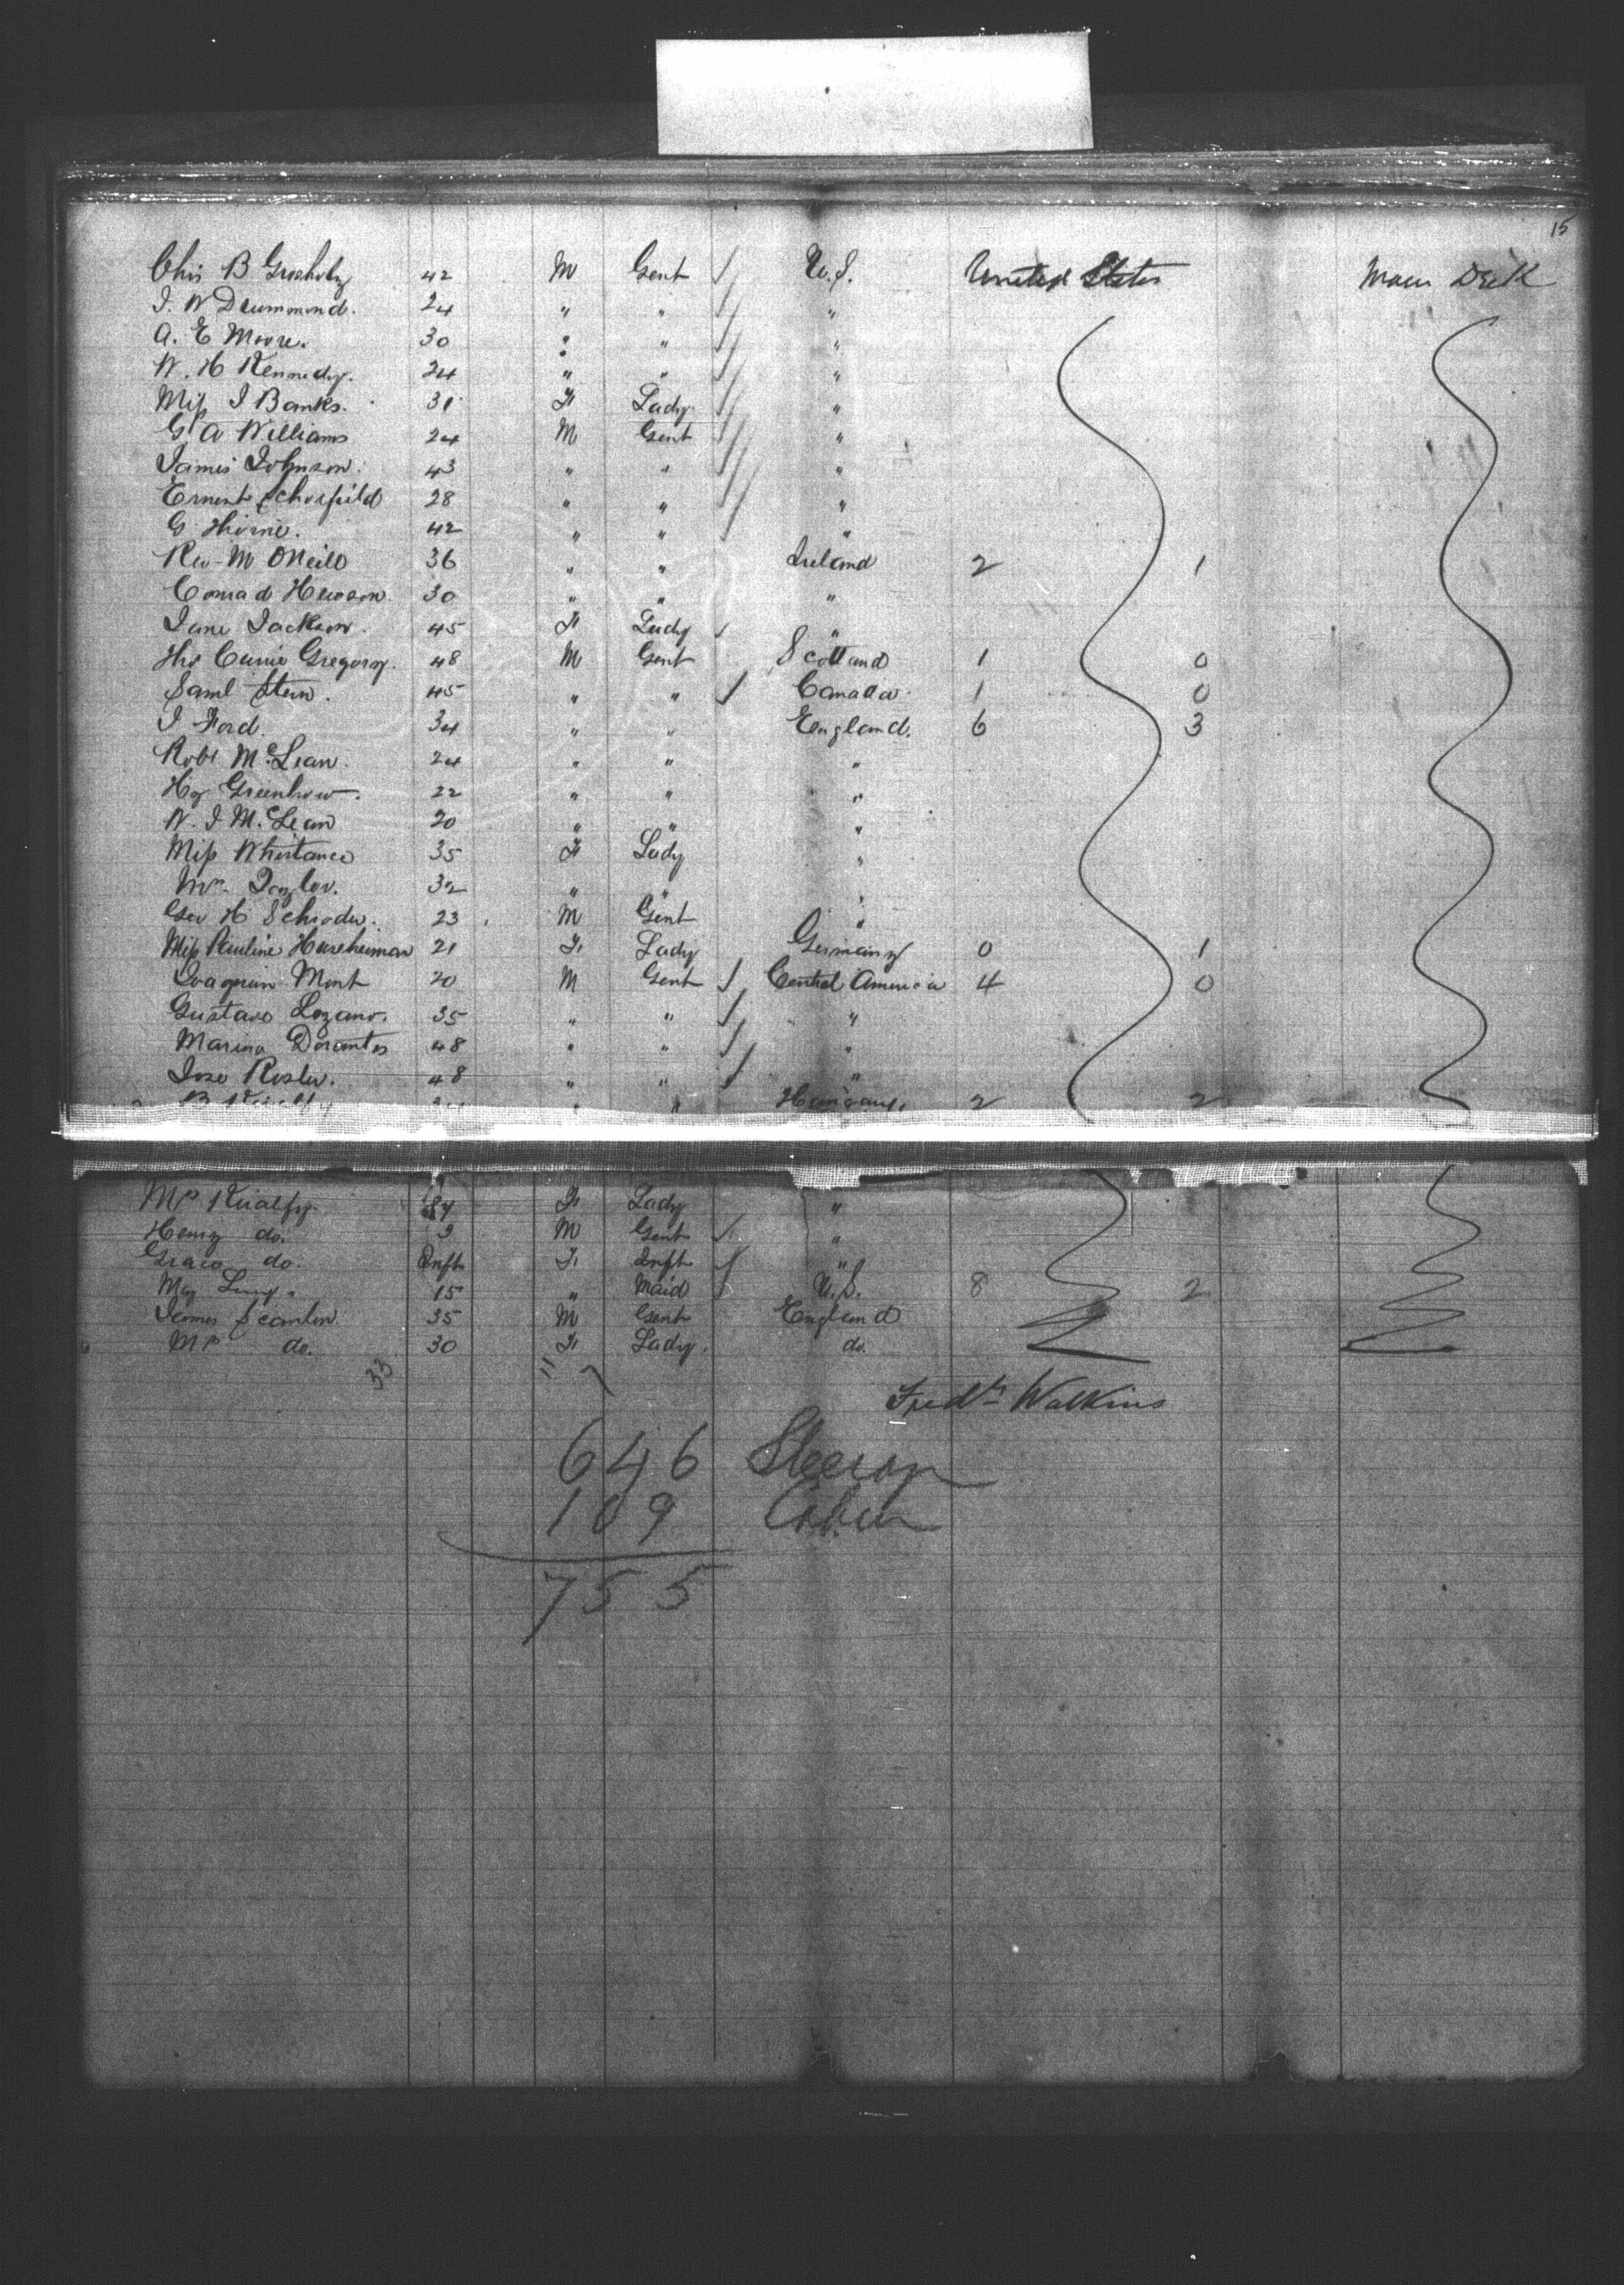 15
Chis B Grosholz 42 M Gent U.S. United States Main Deck
J. W Drummond. 24 " " "
A. E Moore. 30 " " "
W. H Kennedy. 24 " " "
Miss J Banks. 31 F Lady "
G A Williams 24 M Gent "
James Johnson. 43 " " "
Ernest Schorfield 28 " " "
G Thorne. 42 " " "
Rev M ONeill 36 " " Ireland 2 1
Conrad Hewson. 30 " " "
Jane Jackson. 45 F Lady "
Thos Currie Gregory. 48 M Gent Scotland 1 0
Saml Stern. 45 " " Canada. 1 0
J Ford. 34 " " England. 6 3
Robt McLean. 24 " " "
Hy Greenhow. 22 " " "
W. J McLean 20 " " "
Miss 35 F Lady "
Mrs. Taylor. 32 " " "
Geo H Schroder. 23 M Gent "
Miss Pauline 21 F Lady Germany 0 1
Joaquin Mont 20 M Gent Central America 4 0
Gustavo Lozano. 35 " " "
Marina Dorantes 48 " " "
Jose Rosler. 48 " " "
B Kiralfy " " Hungary. 2 2
Mrs Kiralfy. F Lady "
Henry do. 9 M Gent "
Grace do. Inft F Inft "
May 15 " Maid U.S. 8 2
James Scanlon. 35 M Gent England
Mrs do. 30 F Lady. do.
33 11
Fredk Watkins
646 Steerage
109 Cabin
755